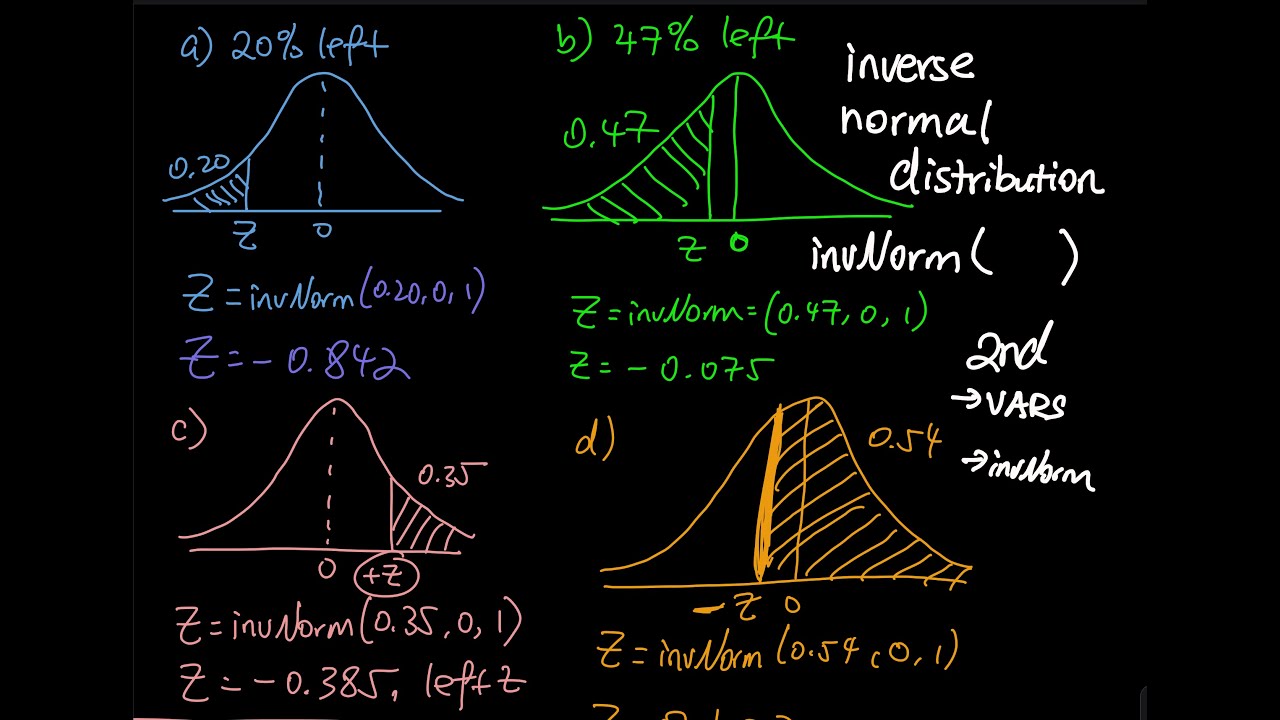 a) 20% left
0.20
Z 0
Z = invNorm(0.20, 0, 1)
Z = -0.842
b) 47% left
0.47
Z 0
Z = invNorm = (0.47, 0, 1)
Z = -0.075
inverse
normal
distribution
invNorm( )
2nd
→ VARS
→ invNorm
c)
0.35
0 +Z
Z = invNorm(0.35, 0, 1)
Z = -0.385, left Z
d)
0.54
- Z 0
Z = invNorm (0.54, 0, 1)